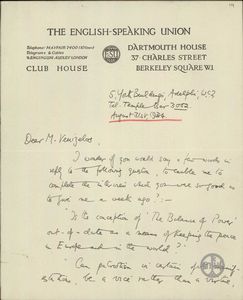 THE ENGLISH-SPEAKING UNION
Telephone: MAYFAIR 7400
Telegrams & Cables
CLUB HOUSE
ESU
DARTMOUTH HOUSE
37 · CHARLES STREET
BERKELEY SQUARE W.1.
5, York Buildings, Adelphi, W.C.2
Tel. Temple Bar 3002.
August 21st, 1934.
Dear M. Venizelos,
I wonder if you would say a few words in
reply to the following questions, to enable me to
complete the interview which you were so good as
to give me a week ago? :-
Is the conception of 'The Balance of Power'
out-of-date as a means of keeping the peace
in Europe and in the world?
Can patriotism in certain
be a vice rather than a virtue,